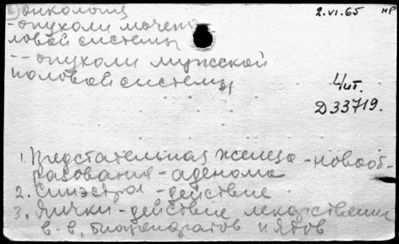 Онкология
2.VI.65 нр
-опухоли мочепо
ловой системы
-- опухоли мужской
половой системы
Чит.
Д33719.
1. Предстательная железа - новооб-
разования - аденома
2. Синэстрол - действие
3. Яички - действие лекарственных
в-в, биопрепаратов и ядов